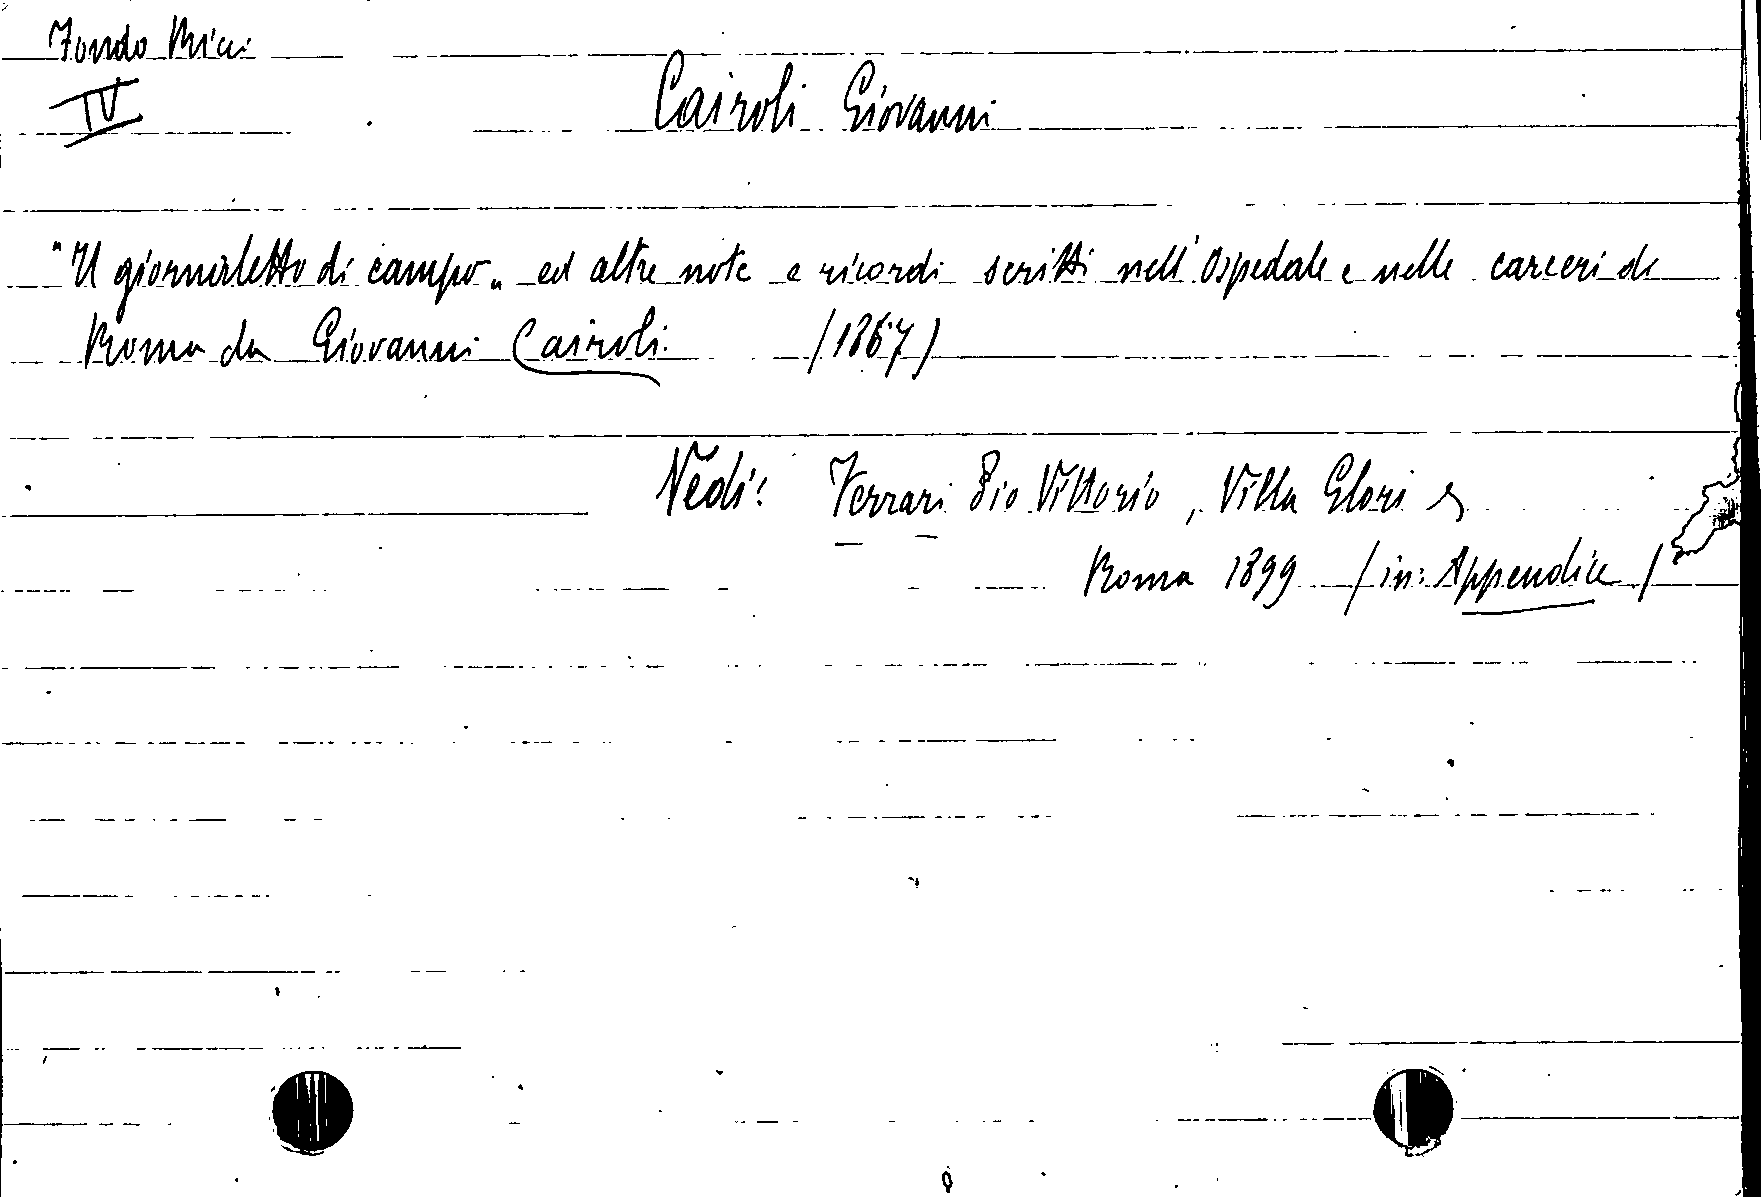 Fondo Ricci
IV
Cairoli Giovanni
"Il giornaletto di campo„ ed altre note e ricordi scritti nell'Ospedale e nelle carceri di
Roma da Giovanni Cairoli. (1867)
Vedi: Ferrari Pio Vittorio, Villa Glori
Roma 1899 (in: Appendice)